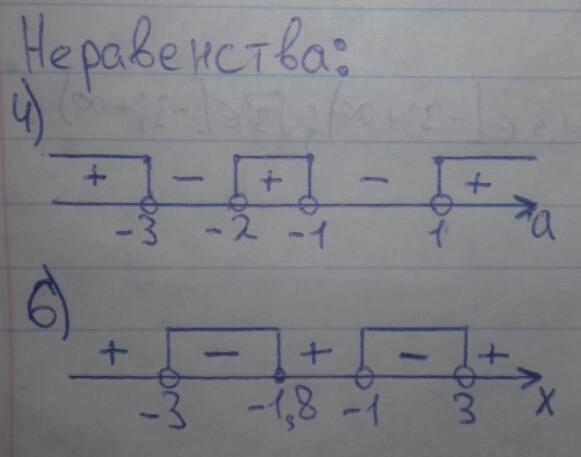 Неравенства:
4)
+ - + - +
-3 -2 -1 1 a
б)
+ - + - +
-3 -1,8 -1 3 x